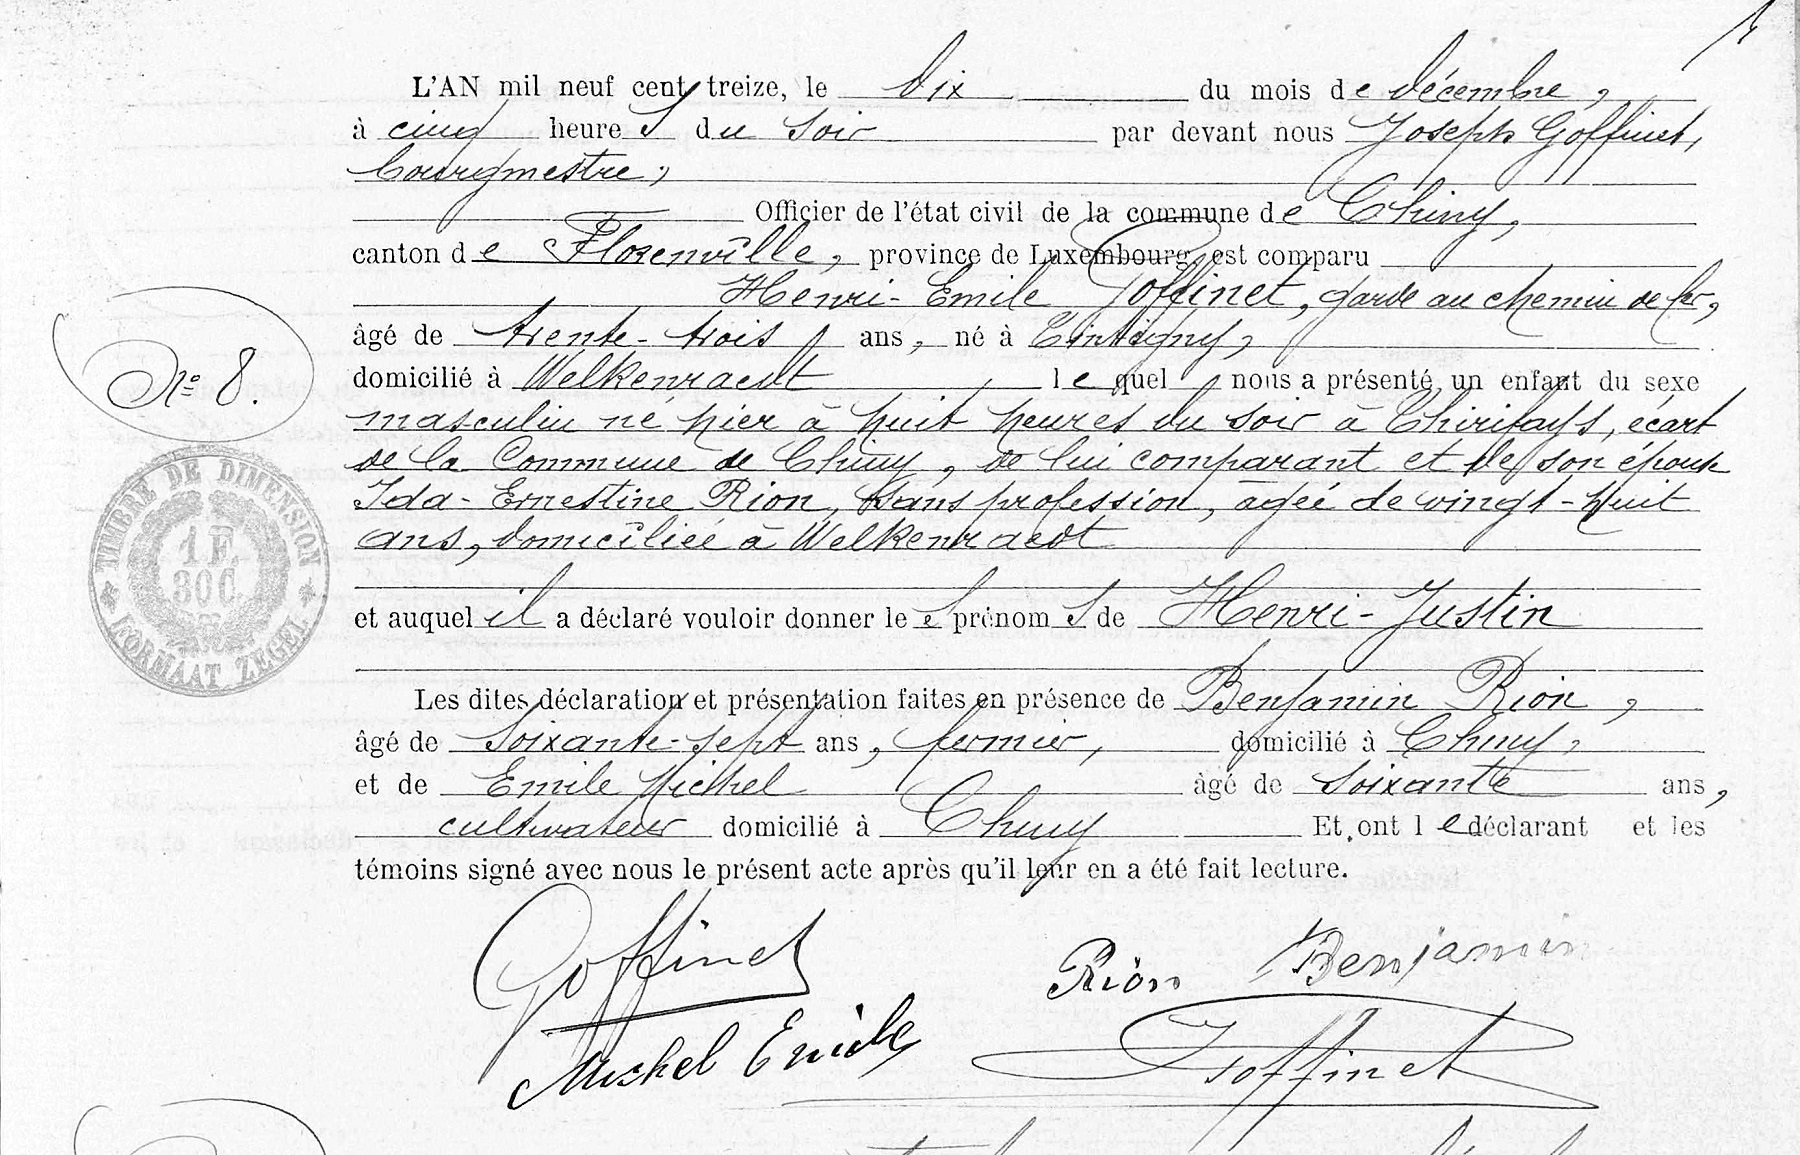 L'AN mil neuf cent treize, le dix du mois de décembre,
à cinq heures du soir par devant nous Joseph Goffinet,
bourgmestre,
Officier de l'état civil de la commune de Chiny,
canton de Florenville, province de Luxembourg, est comparu
Henri-Emile Goffinet, garde au chemin de fer,
âgé de trente-trois ans, né à Tintigny,
domicilié à Welkenraedt lequel nous a présenté un enfant du sexe
masculin né hier à huit heures du soir à Chirifays, écart
de la Commune de Chiny, de lui comparant et de son épouse
Ida-Ernestine Rion, sans profession, âgée de vingt-huit
ans, domiciliée à Welkenraedt
et auquel il a déclaré vouloir donner les prénoms de Henri-Justin
Les dites déclaration et présentation faites en présence de Benjamin Rion,
âgé de soixante-sept ans, fermier, domicilié à Chiny,
et de Emile Michel âgé de soixante ans,
cultivateur domicilié à Chiny Et ont le déclarant et les
témoins signé avec nous le présent acte après qu'il leur en a été fait lecture.
No 8.
TIMBRE DE DIMENSION
1 F.
30 C.
FORMAAT ZEGEL
Goffinet
Rion Benjamin
Michel Emile
Goffinet